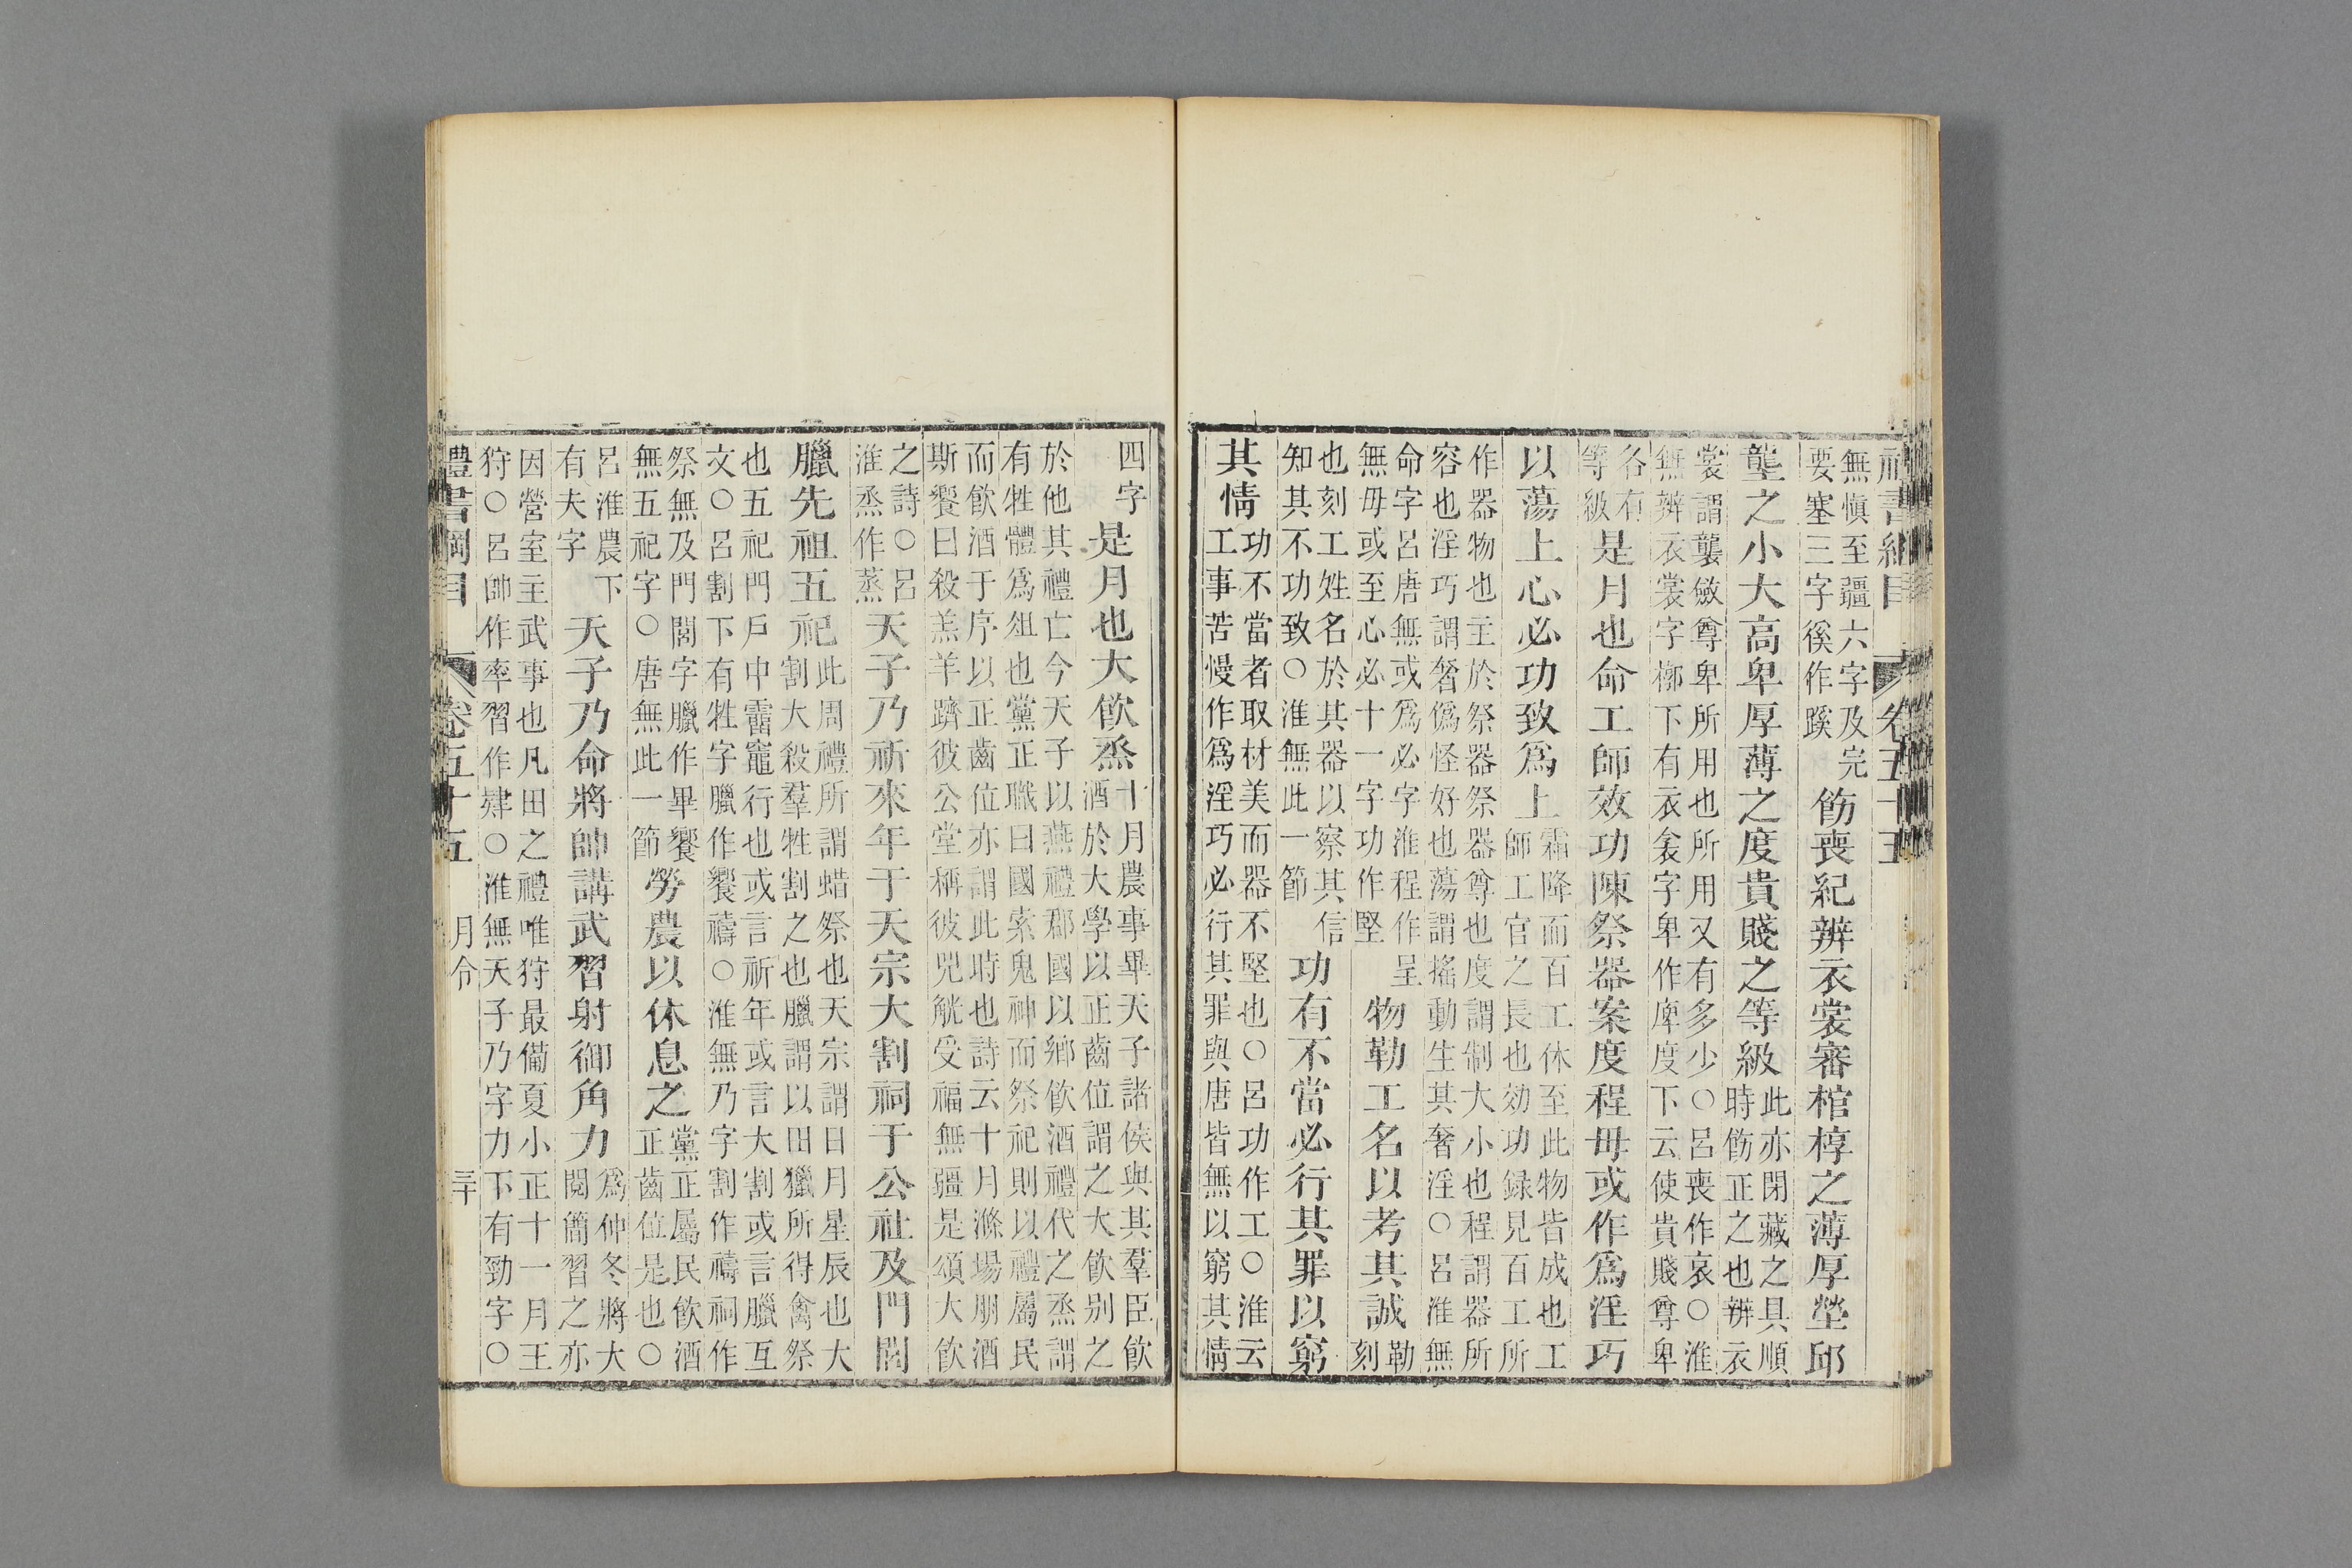 禮書綱目 卷五十五
無愼至疆六字及完
要塞三字徯作蹊
飭喪紀辨衣裳審棺椁之薄厚塋邱
壟之小大高卑厚薄之度貴賤之等級
此亦閉藏之具順
時飭正之也辨衣
裳謂襲斂尊卑所用也所用又有多少○呂喪作哀○淮
無辨衣裳字槨下有衣衾字卑作庳度下云使貴賤尊卑
各有
等級
是月也命工師效功陳祭器案度程毋或作爲淫巧
以蕩上心必功致爲上
霜降而百工休至此物皆成也工
師工官之長也効功録見百工所
作器物也主於祭器祭器尊也度謂制大小也程謂器所
容也淫巧謂奢僞怪好也蕩謂搖動生其奢淫○呂淮無
命字呂唐無或爲必字淮程作呈
無毋或至心必十一字功作堅
物勒工名以考其誠
勒
刻
也刻工姓名於其器以察其信
知其不功致○淮無此一節
功有不當必行其罪以窮
其情
功不當者取材美而器不堅也○呂功作工○淮云
工事苦慢作爲淫巧必行其罪與唐皆無以窮其情
四字
是月也大飮烝
十月農事畢天子諸侯與其羣臣飮
酒於大學以正齒位謂之大飮别之
於他其禮亡今天子以燕禮郡國以鄉飮酒禮代之烝謂
有牲體爲俎也黨正職曰國索鬼神而祭祀則以禮屬民
而飮酒于序以正齒位亦謂此時也詩云十月滌場朋酒
斯饗曰殺羔羊躋彼公堂稱彼兕觥受福無疆是頌大飮
之詩○呂
淮烝作蒸
天子乃祈來年于天宗大割祠于公社及門閭
臘先祖五祀
此周禮所謂蜡祭也天宗謂日月星辰也大
割大殺羣牲割之也臘謂以田獵所得禽祭
也五祀門戶中霤竈行也或言祈年或言大割或言臘互
文○呂割下有牲字臘作饗禱○淮無乃字割作禱祠作
祭無及門閭字臘作畢饗
無五祀字○唐無此一節
勞農以休息之
黨正屬民飮酒
正齒位是也○
呂淮農下
有夫字
天子乃命將帥講武習射御角力
爲仲冬將大
閱簡習之亦
因營室主武事也凡田之禮唯狩最備夏小正十一月王
狩○呂帥作率習作肄○淮無天子乃字力下有勁字○
禮書綱目 卷五十五 月令 三十